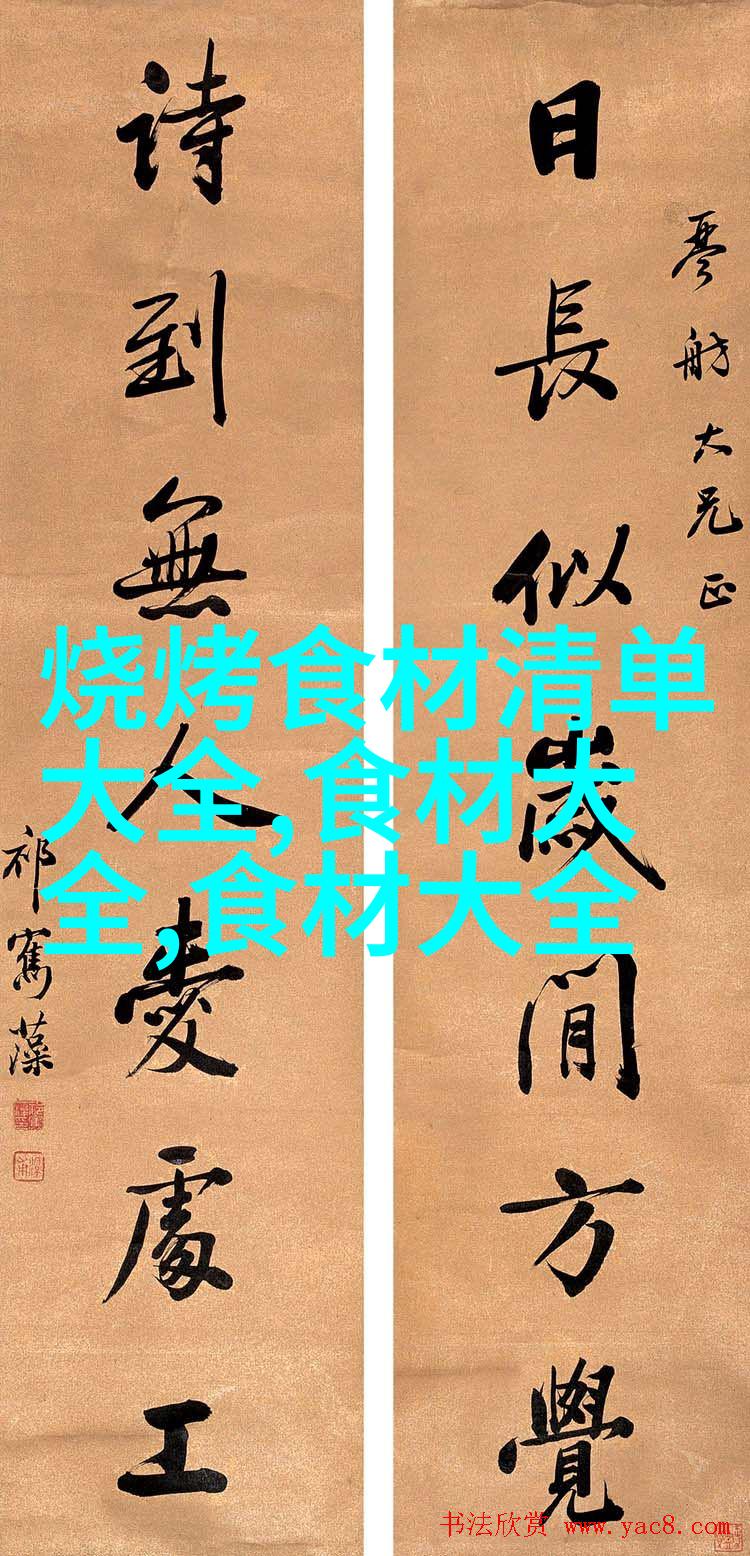 琴舫大兄正
日長似歲閒方覺
詩到無人愛處工
祁寯藻
烧烤食材清单
大全,食材大
全,食材大全
书法欣赏 www.yac8.com